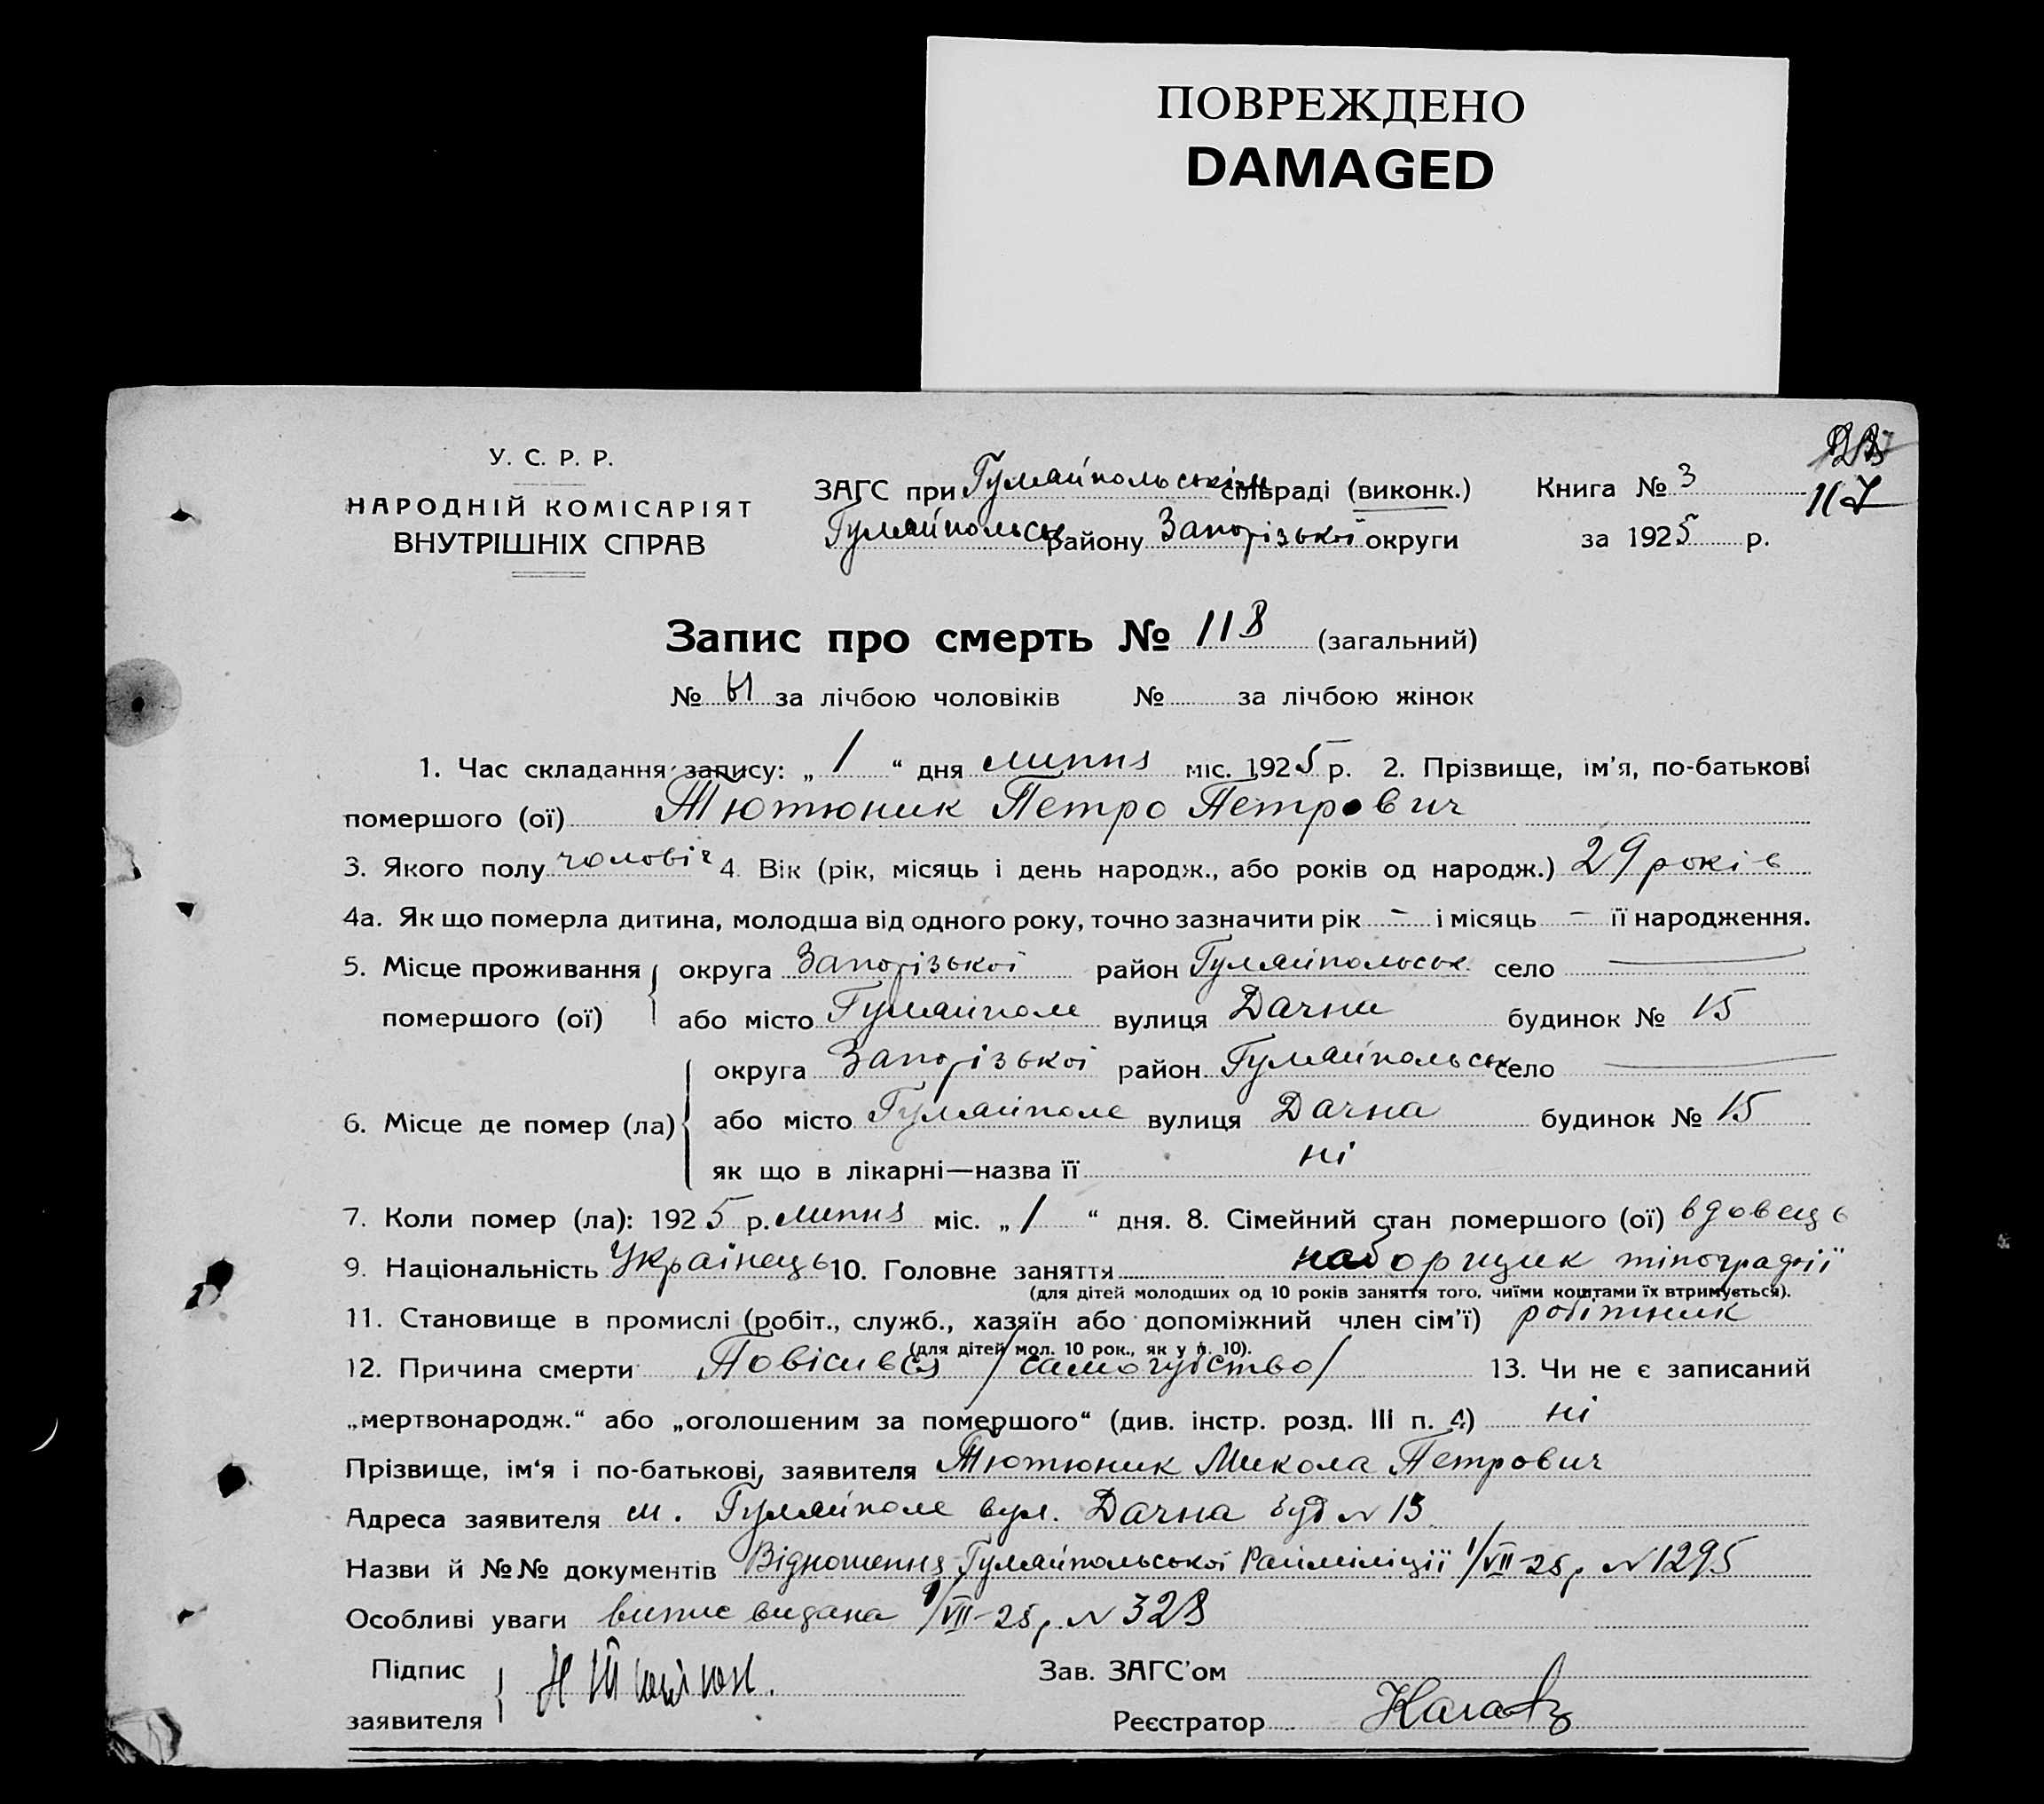 ПОВРЕЖДЕНО
DAMAGED
У. С. Р. Р.
НАРОДНІЙ КОМІСАРІЯТ
ВНУТРІШНІХ СПРАВ
ЗАГС при Гуляйпольськім сільраді (виконк.)
Гуляйпольськ району Запорізької округи
Книга № 3
за 1925 р.
117
Запис про смерть № 118 (загальний)
№ за лічбою чоловіків № за лічбою жінок
1. Час складання запису: „ 1 “ дня липня міс. 1925 р. 2. Прізвище, ім’я, по-батькові
помершого (ої) Тютюник Петро Петрович
3. Якого полу чоловіч 4. Вік (рік, місяць і день народж., або років од народж.) 29 років
4а. Як що померла дитина, молодша від одного року, точно зазначити рік – і місяць – її народження.
5. Місце проживання помершого (ої)
округа Запорізької район Гуляйпольськ. село —
або місто Гуляйполе вулиця Дачна будинок № 15
6. Місце де помер (ла)
округа Запорізької район Гуляйпольськ село —
або місто Гуляйполе вулиця Дачна будинок № 15
як що в лікарні—назва її ні
7. Коли помер (ла): 1925 р. липня міс. „ 1 “ дня. 8. Сімейний стан помершого (ої) вдовець
9. Національність Українець 10. Головне заняття наборщик тіпографії
(для дітей молодших од 10 років заняття того, чиїми коштами їх втримується).
11. Становище в промислі (робіт., служб., хазяїн або допоміжний член сім’ї) робітник
(для дітей мол. 10 рок., як у п. 10).
12. Причина смерти Повісився /самогубство/ 13. Чи не є записаний
„мертвонародж.“ або „оголошеним за помершого“ (див. інстр. розд. III п. 4) ні
Прізвище, ім‘я і по-батькові, заявителя Тютюник Микола Петрович
Адреса заявителя м. Гуляйполе вул. Дачна буд № 15
Назви й №№ документів Відношення Гуляйпольської Райміліції 1/VII-25р № 1295
Особливі уваги випис видана 1/VII-25р. № 328
Підпис
заявителя
Зав. ЗАГС’ом
Реєстратор